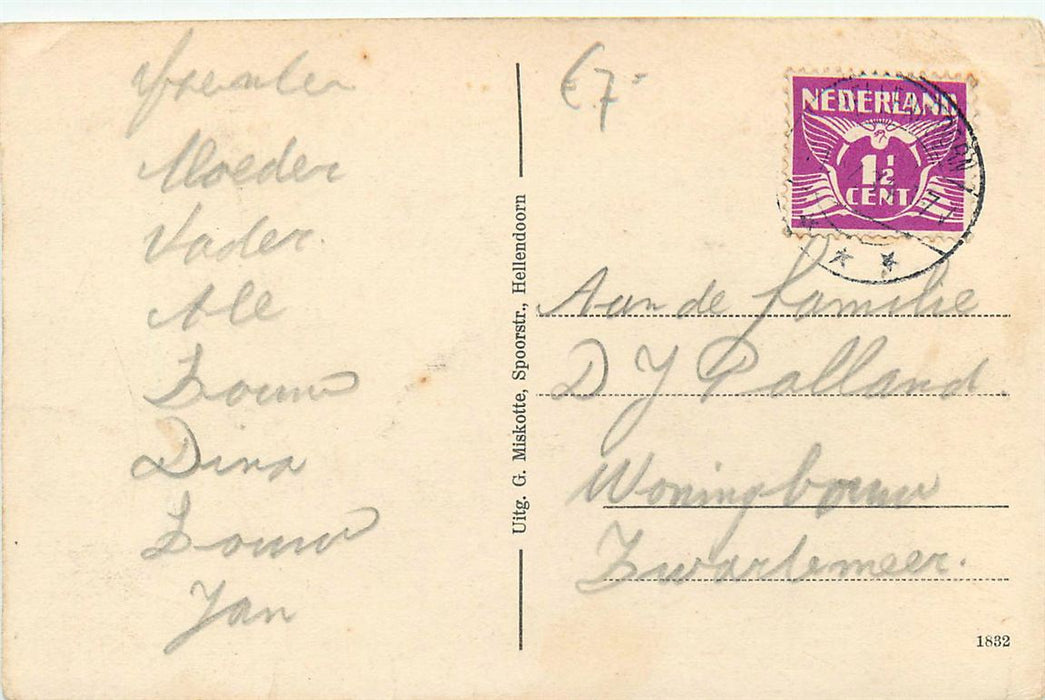 Moeder
Vader.
Ale
Louw
Dina
Louw
Jan
Uitg. G. Miskotte, Spoorstr., Hellendoorn
€7-
NEDERLAND
1½
CENT
Aan de familie
D J Palland.
Woningbouw
Zwartemeer.
1832